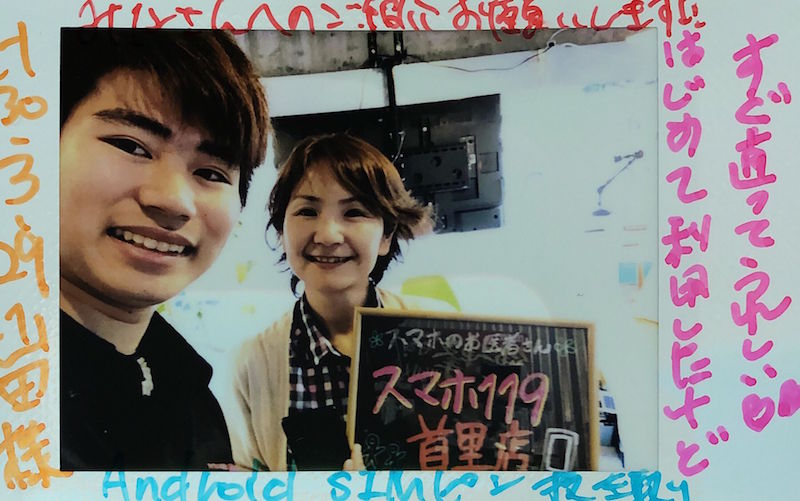 みなさんへのご紹介お願いします!!
はじめて利用したけど
すぐ直ってうれしい
H30.3.29 山田様
スマホのお医者さん
スマホ119
首里店
Android SIMピン